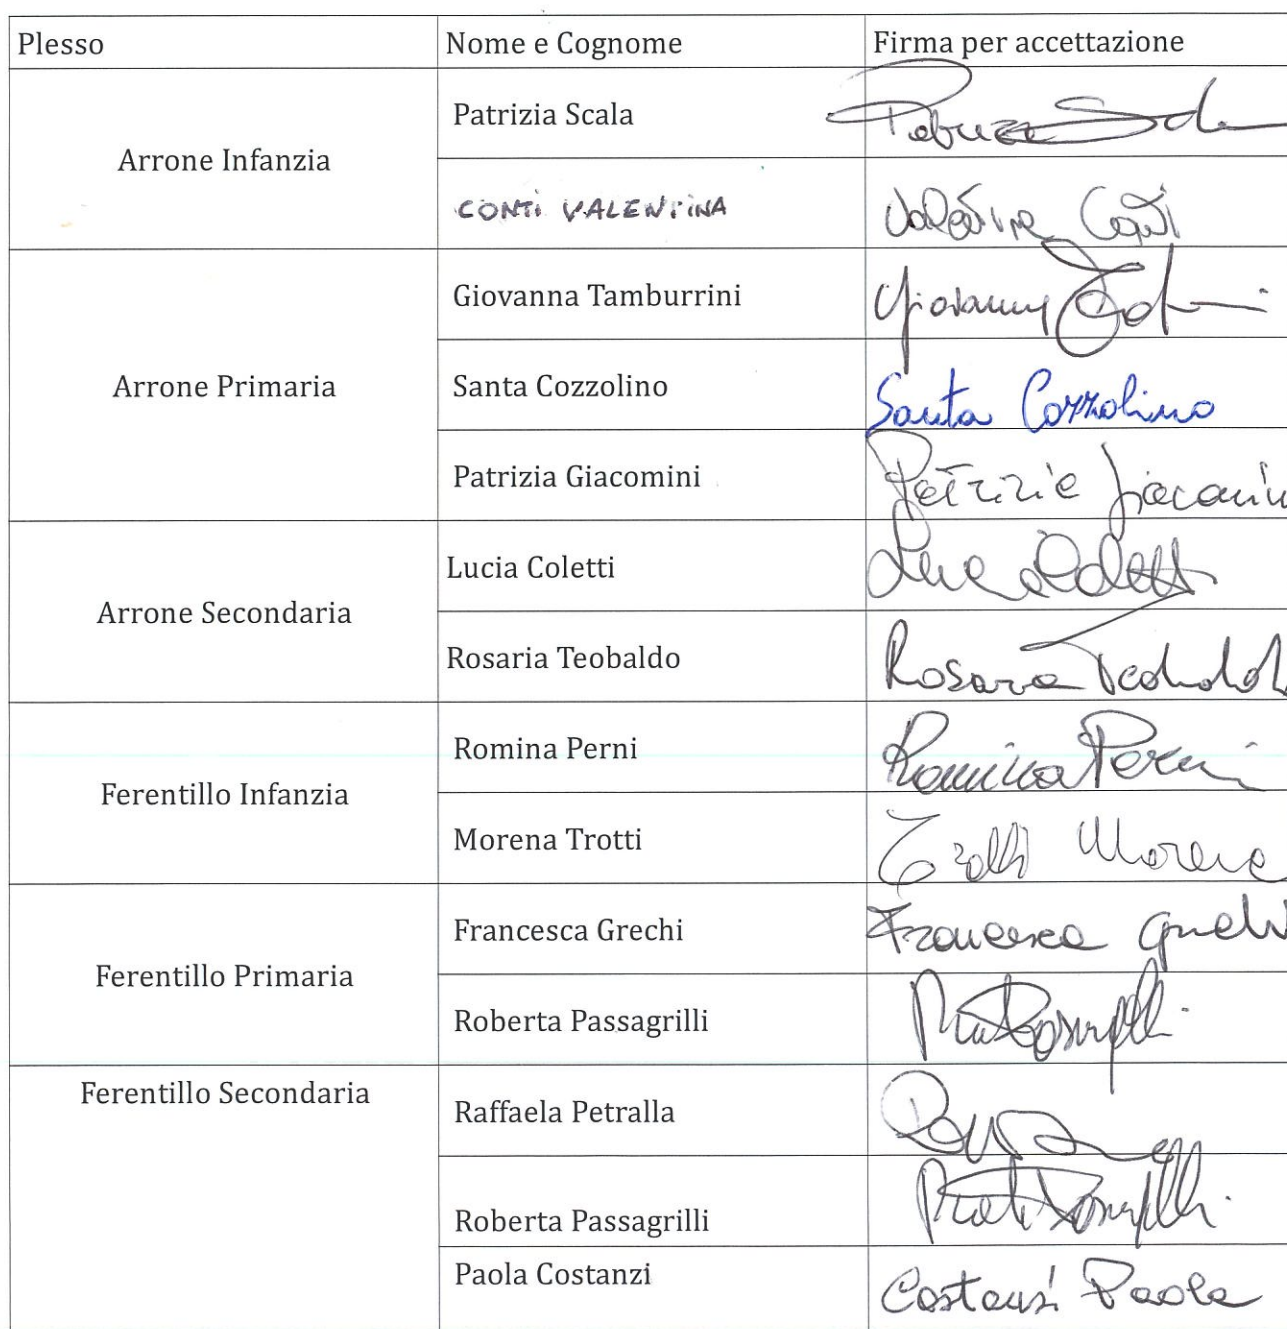 Plesso Nome e Cognome Firma per accettazione
Arrone Infanzia
Patrizia Scala
CONTI VALENTINA Valentina Conti
Arrone Primaria
Giovanna Tamburrini Giovanna
Santa Cozzolino Santa Cozzolino
Patrizia Giacomini Patrizia Giacomini
Arrone Secondaria
Lucia Coletti Lucia Coletti
Rosaria Teobaldo Rosaria Teobaldo
Ferentillo Infanzia
Romina Perni Romina Perni
Morena Trotti Trotti Morena
Ferentillo Primaria
Francesca Grechi Francesca Grechi
Roberta Passagrilli
Ferentillo Secondaria
Raffaela Petralla
Roberta Passagrilli
Paola Costanzi Costanzi Paola